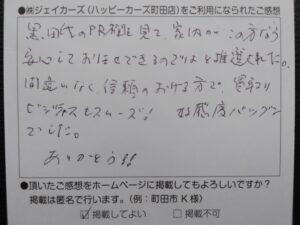 ●㈱ジェイカーズ(ハッピーカーズ町田店)をご利用になられたご感想
黒田代のPR
を見て、家内が この方なら
安心しておまかせできるのではと推選された。
間違いなく、信頼のおける方で、買取り
ビジネスもスムーズ! 好感度バツグン
でした。
ありがとう!!
●頂いたご感想をホームページに掲載してもよろしいですか?
掲載は匿名で行います。(例:町田市K様)
☑掲載してよい □掲載不可